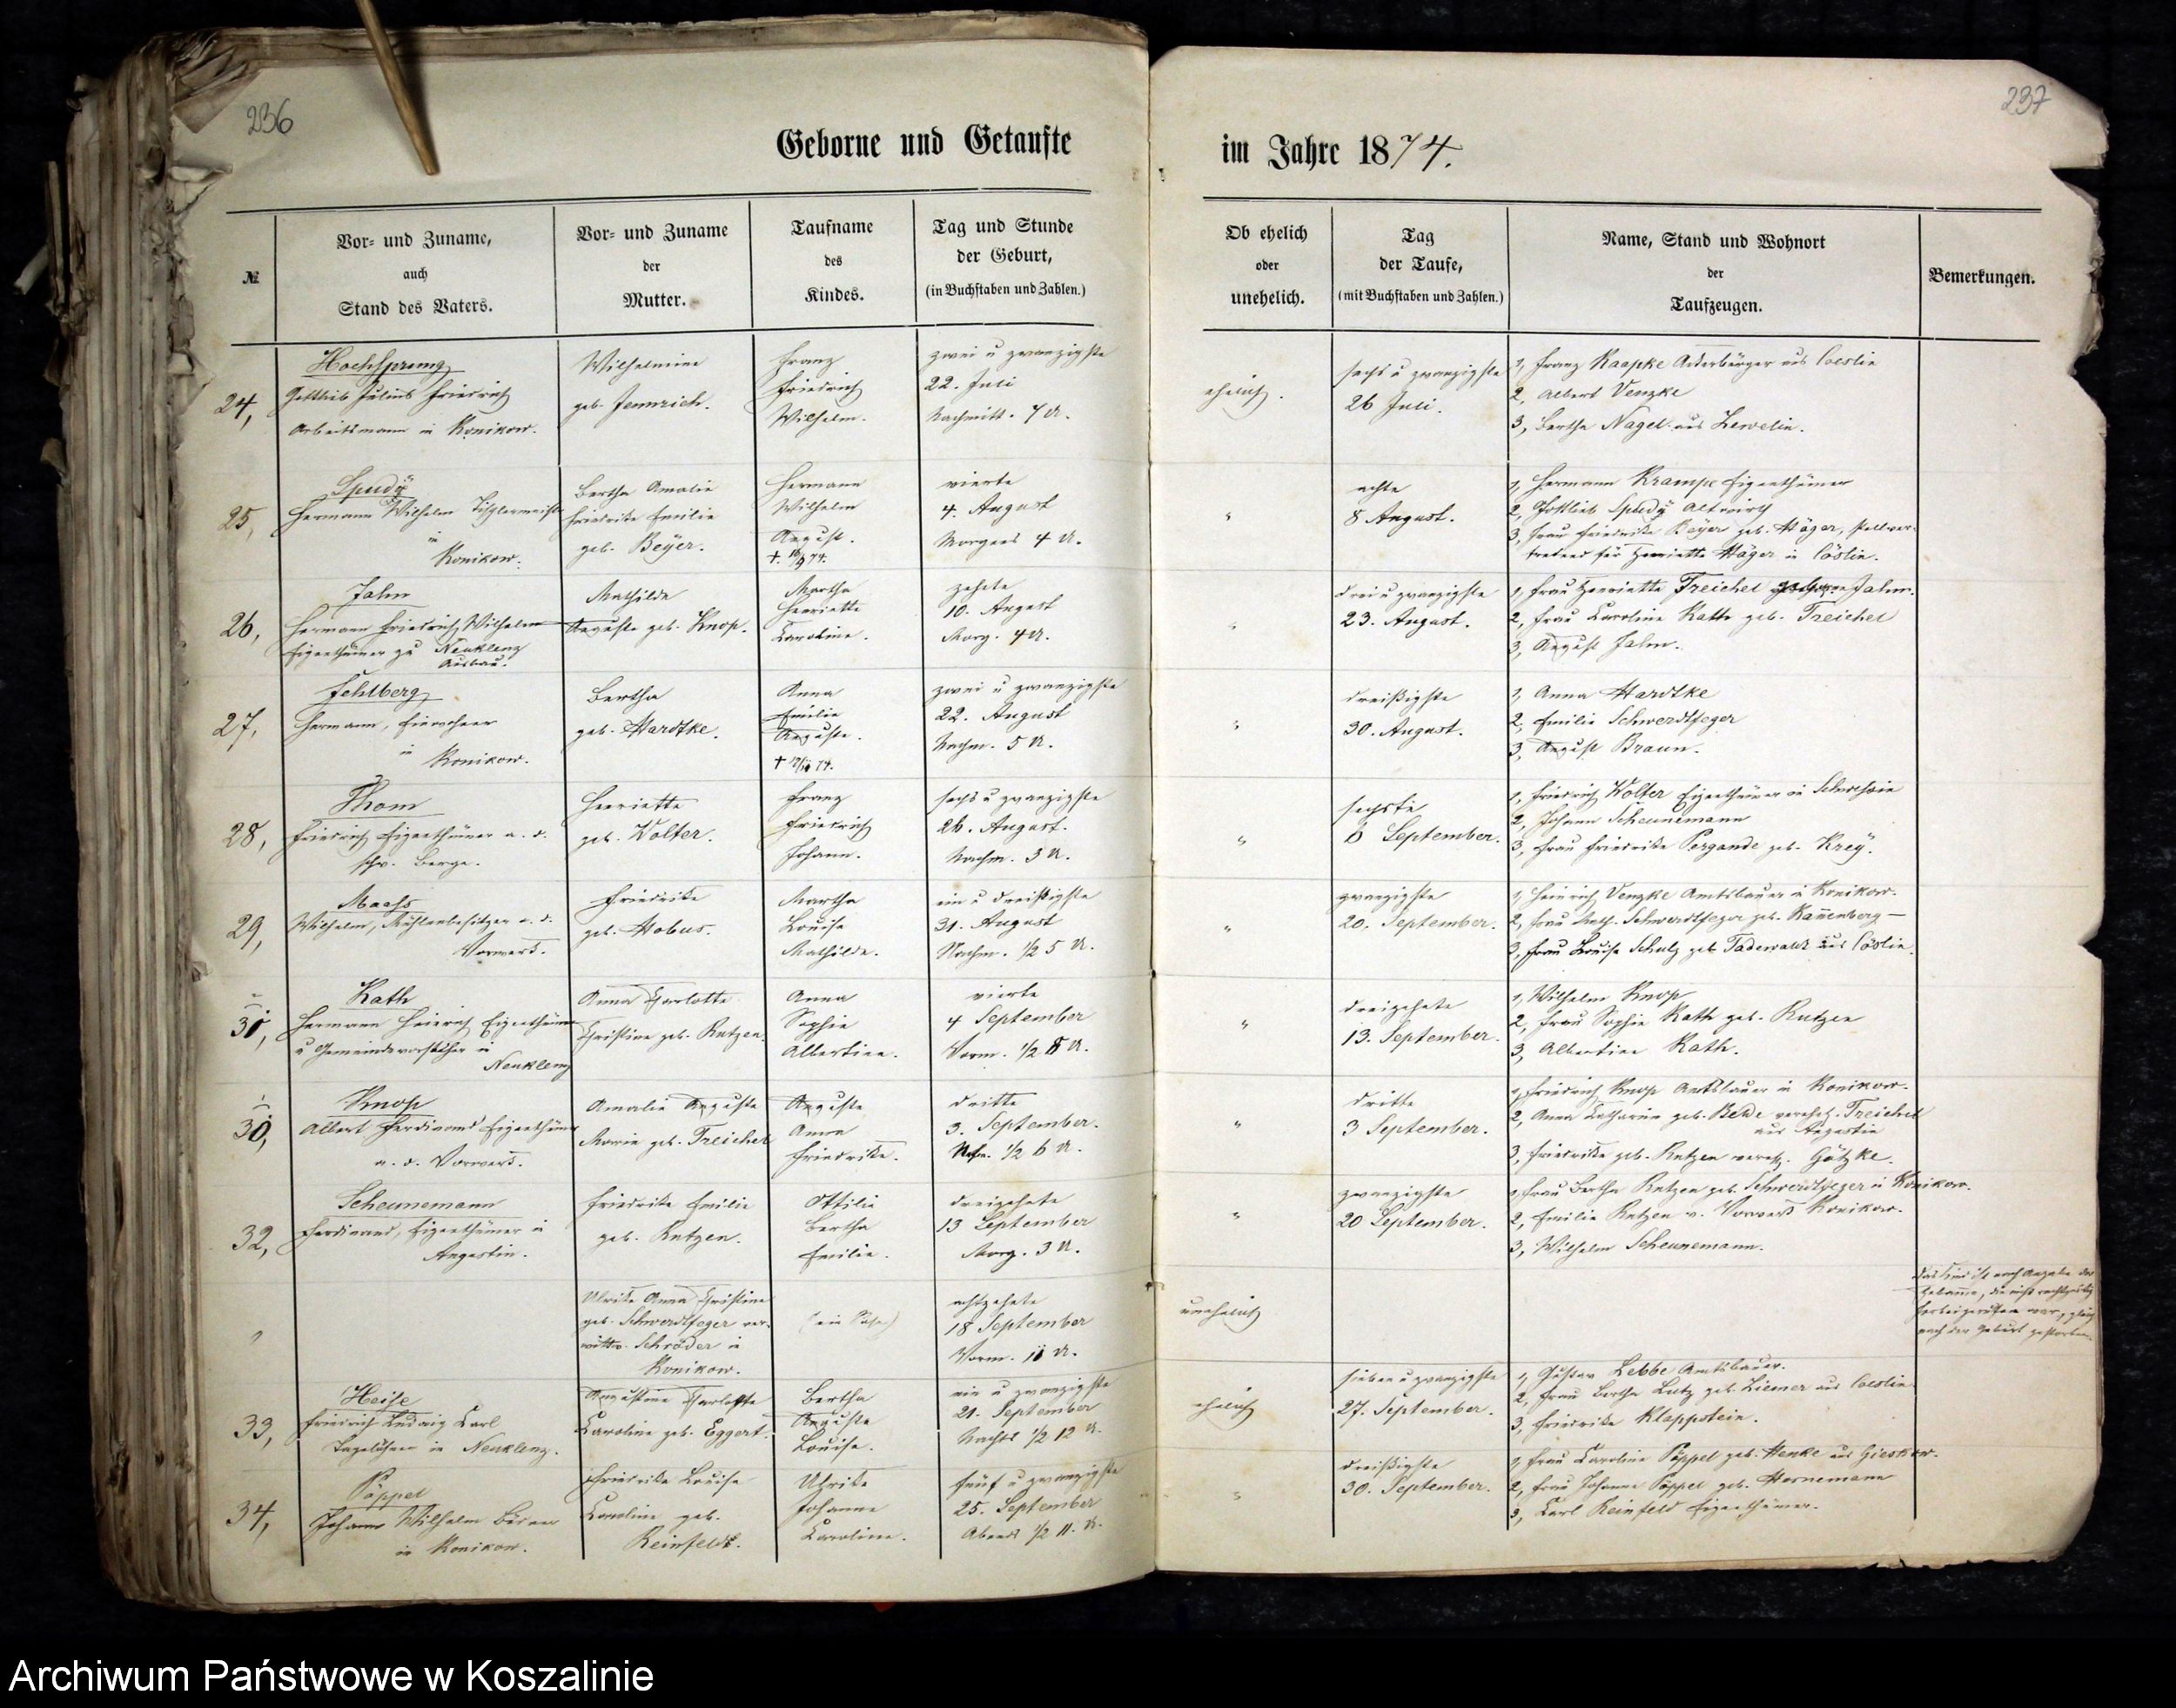 236
237
Geborne und Getaufte
im Jahre 1874.
№
Vor- und Zuname,
auch
Stand des Vaters.
Vor- und Zuname
der
Mutter.
Taufname
des
Kindes.
Tag und Stunde
der Geburt,
(in Buchstaben und Zahlen.)
Ob ehelich
oder
unehelich.
Tag
der Taufe,
(mit Buchstaben und Zahlen.)
Name, Stand und Wohnort
der
Taufzeugen.
Bemerkungen.
24,
Hochsprung
Gottlieb Julius Friedrich
Arbeitsmann in Konikow.
Wilhelmine
geb. Jennrich.
Franz
Friedrich
Wilhelm.
zwei u zwanzigste
22. Juli
Nachmitt. 7 U.
ehelich.
sechs u zwanzigste
26 Juli.
1, Franz Kaapke Ackerbürger aus Coeslin
2, Albert Venzke
3, Bertha Nagel aus Lewelin.
25,
Spudÿ
Hermann Wilhelm Tischlermeister
in
Konikow.
Bertha Amalie
Friedrike Emilie
geb. Beÿer.
Hermann
Wilhelm
August.
vierte
4. August
Morgens 4 U.
"
achte
8 August.
1, Hermann Krampe Eigenthümer
2, Gottlieb Spudÿ Altwirth
3, Frau Friedrike Beÿer geb. Häger, stellver-
tretend für Henriette Häger in Cöslin.
26,
Jahn
Hermann Friedrich Wilhelm
Eigenthümer zu Neuklenz
Ausbau.
Mathilde
Auguste geb. Knop.
Martha
Henriette
Caroline.
zehnte
10. August
Morg. 4 U.
"
drei u zwanzigste
23. August.
1, Frau Henriette Treichel geborne Jahn.
2, Frau Caroline Kath geb. Treichel
3, August Jahn.
27,
Fehlberg
Hermann, Einwohner
in
Konikow.
Bertha
geb. Hardtke.
Anna
Emilie
Auguste.
zwei u zwanzigste
22. August
Nachm. 5 U.
"
dreißigste
30. August.
1, Anna Hardtke
2, Emilie Schwerdtfeger
3, August Braun.
28,
Thom
Friedrich Eigenthümer a. d.
schw. Berge.
Henriette
geb. Wolter.
Franz
Friedrich
Johann.
sechs u zwanzigste
26. August.
Nachm. 3 U.
"
sechste
6 September.
1, Friedrich Wolter Eigenthümer in Schwessin
2, Johann Scheunemann
3, Frau Friedrike Pergande geb. Kreÿ.
29,
Maass
Wilhelm, Mühlenbesitzer a. d.
Vorwerk.
Friedrike
geb. Hobus.
Martha
Louise
Mathilde.
ein u dreißigste
31. August
Nachm. 1/2 5 U.
"
zwanzigste
20. September.
1, Heinrich Venzke Amtsbauer in Konikow.
2, Frau Schwerdtfeger geb. Kannenberg
3, Frau Louise Schulz geb. aus Cöslin.
31,
Kath
Hermann Heinrich Eigenthümer
u Gemeindevorsteher in
Neuklenz
Anna Charlotte
Christine geb. Rutzen.
Anna
Sophie
Albertine.
vierte
4 September
Vorm. 1/2 8 U.
"
dreizehnte
13. September.
1, Wilhelm Knop
2, Frau Sophie Kath geb. Rutzen
3, Albertine Kath.
30,
Knop
Albert Ferdinand Eigenthümer
a. d. Vorwerk.
Amalie Auguste
Marie geb. Treichel
Auguste
Anna
Friedrike.
dritte
3. September.
1/2 6 U.
"
dritte
3 September.
1, Friedrich Knop Amtsbauer in Konikow.
2, Anna Catharine geb. verehel. Treichel
aus Augustin
3, Friedrike geb. Rutzen verehl. Götzke.
32,
Scheunemann
Ferdinand, Eigenthümer in
Augustin.
Friedrike Emilie
geb. Rutzen.
Ottilie
Bertha
Emilie.
dreizehnte
13 September
Morg. 3 U.
"
zwanzigste
20 September.
1, Frau Bertha Rutzen geb. Schwerdtfeger in Konikow.
2, Emilie Rutzen v. Vorwerk Konikow.
3, Wilhelm Scheunemann.
"
Ulrike Anna Christine
geb. Schwerdtfeger ver-
wittw. Schröder in
Konikow.
(ein Sohn)
achtzehnte
18 September
Vorm. 11 U.
unehelich
Das Kind ist nach Angabe der
Hebamme, die nicht rechtzeitig
herbeigerufen war, gleich
nach der Geburt gestorben.
33,
Heise
Friedrich Ludwig Carl
Tagelöhner in Neuklenz.
Augustine Charlotte
Caroline geb. Eggert.
Bertha
Auguste
Louise.
ein u zwanzigste
21. September
Nachts 1/2 12 U.
ehelich
sieben u zwanzigste
27. September.
1, Gustav Lebbe Amtsbauer.
2, Frau Bertha Lutz geb. Ziemer aus Coeslin
3, Friedrike Klappstein.
34,
Pöppel
Johann Wilhelm Büdner
in Konikow.
Friedrike Louise
Caroline geb.
Reinfeldt.
Ulrike
Johanne
Caroline.
fünf u zwanzigste
25. September
Abends 1/2 11. U.
"
dreißigste
30. September.
1, Frau Caroline Pöppel geb. Henke aus Gieskow.
2, Frau Johanne Pöppel geb. Hornemann
3, Carl Reinfeld Eigenthümer.
Archiwum Państwowe w Koszalinie